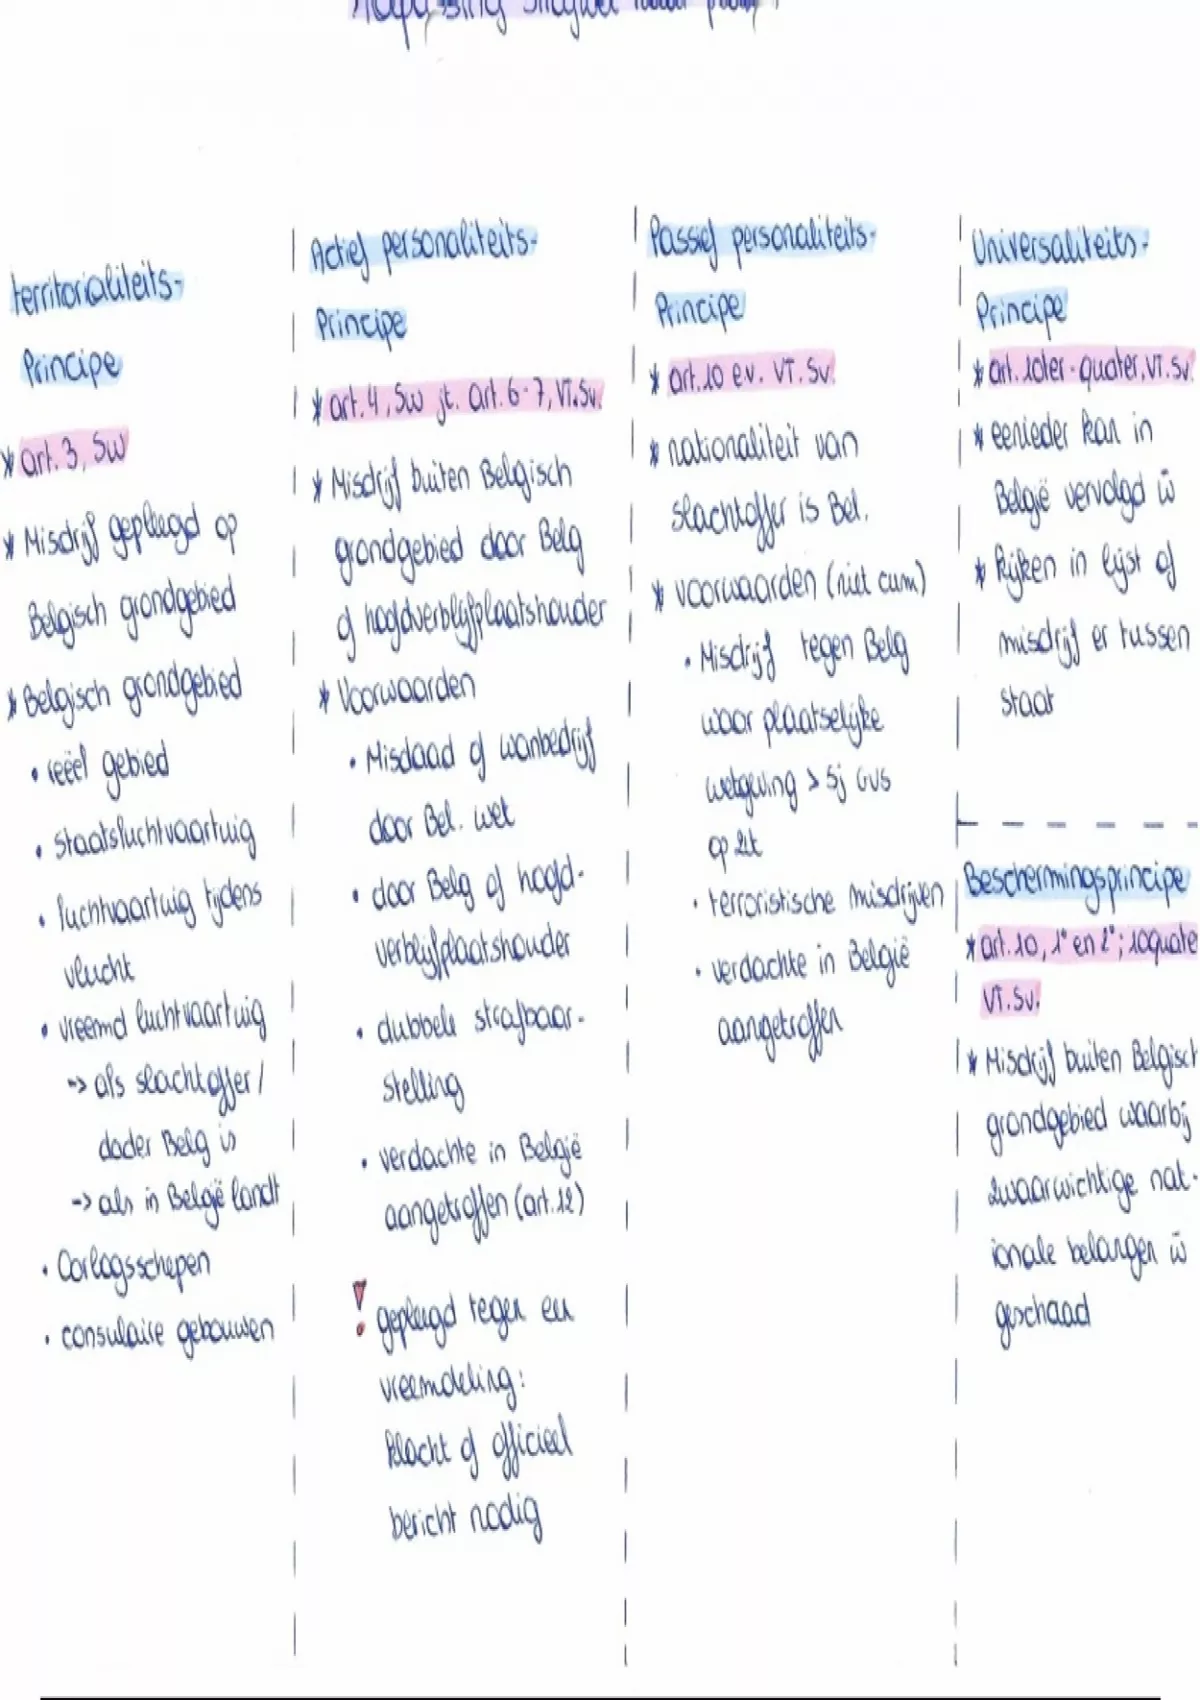 territorialiteits-
Principe
* art. 3, SW
* Misdrijf gepleegd op
Belgisch grondgebied
* Belgisch grondgebied
• reëel gebied
• Staatsluchtvaartuig
• luchtvaartuig tijdens
vlucht
• vreemd luchtvaartuig
-> als slachtoffer /
dader Belg is
-> als in België landt
• Oorlogsschepen
• consulaire gebouwen
Actief personaliteits-
Principe
* art. 4, SW jt. art. 6-7, VT.Sv.
* Misdrijf buiten Belgisch
grondgebied door Belg
of hoofdverblijfplaatshouder
* Voorwaarden
• Misdaad of wanbedrijf
door Bel. wet
• door Belg of hoofd-
verblijfplaatshouder
• dubbele strafbaar-
stelling
• verdachte in België
aangetroffen (art. 12)
! gepleegd tegen een
vreemdeling:
klacht of officieel
bericht nodig
Passief personaliteits-
Principe
* art. 10 ev. VT. Sv.
* nationaliteit van
slachtoffer is Bel.
* voorwaarden (niet cum)
• Misdrijf tegen Belg
waar plaatselijke
wetgeving > 5j GVS
op zit
• terroristische misdrijven
• verdachte in België
aangetroffen
Universaliteits-
Principe
* art. 10ter-quater, VT. Sv.
* eenieder kan in
België vervolgd w̄
* kijken in lijst of
misdrijf er tussen
staat
Beschermingsprincipe
* art. 10, 1° en 2°; 10quate
VT. Sv.
* Misdrijf buiten Belgisch
grondgebied waarbij
zwaarwichtige nat-
ionale belangen w̄
geschaad